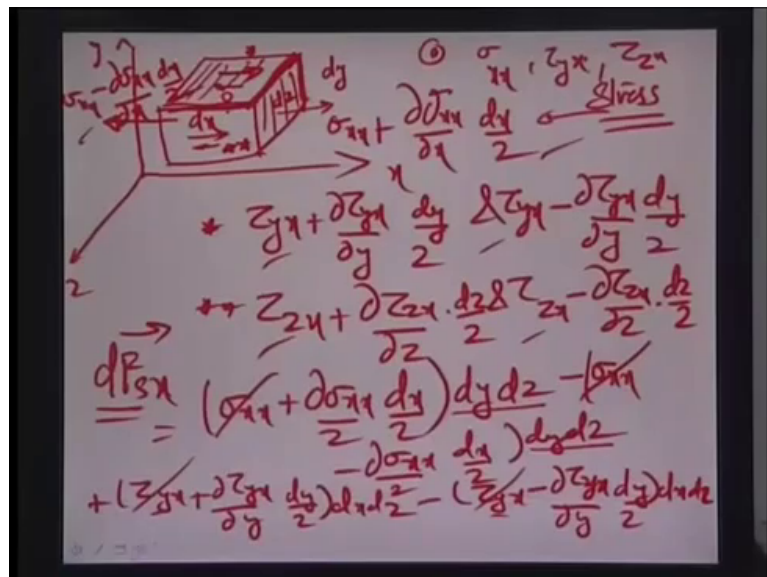 y
σxx - ∂σxx/∂x dx/2
dx
dy
x
z
⊙ σxx , τyx , τzx
σxx + ∂σxx/∂x dx/2 ← Stress
* τyx + ∂τyx/∂y dy/2 & τyx - ∂τyx/∂y dy/2
** τzx + ∂τzx/∂z . dz/2 & τzx - ∂τzx/∂z . dz/2
dFsx
= (σxx + ∂σxx/2 dx/2) dydz - (σxx
- ∂σxx/2 dx/2) dydz
+ (τyx + ∂τyx/∂y dy/2) dxdz - (τyx - ∂τyx/∂y dy/2) dxdz